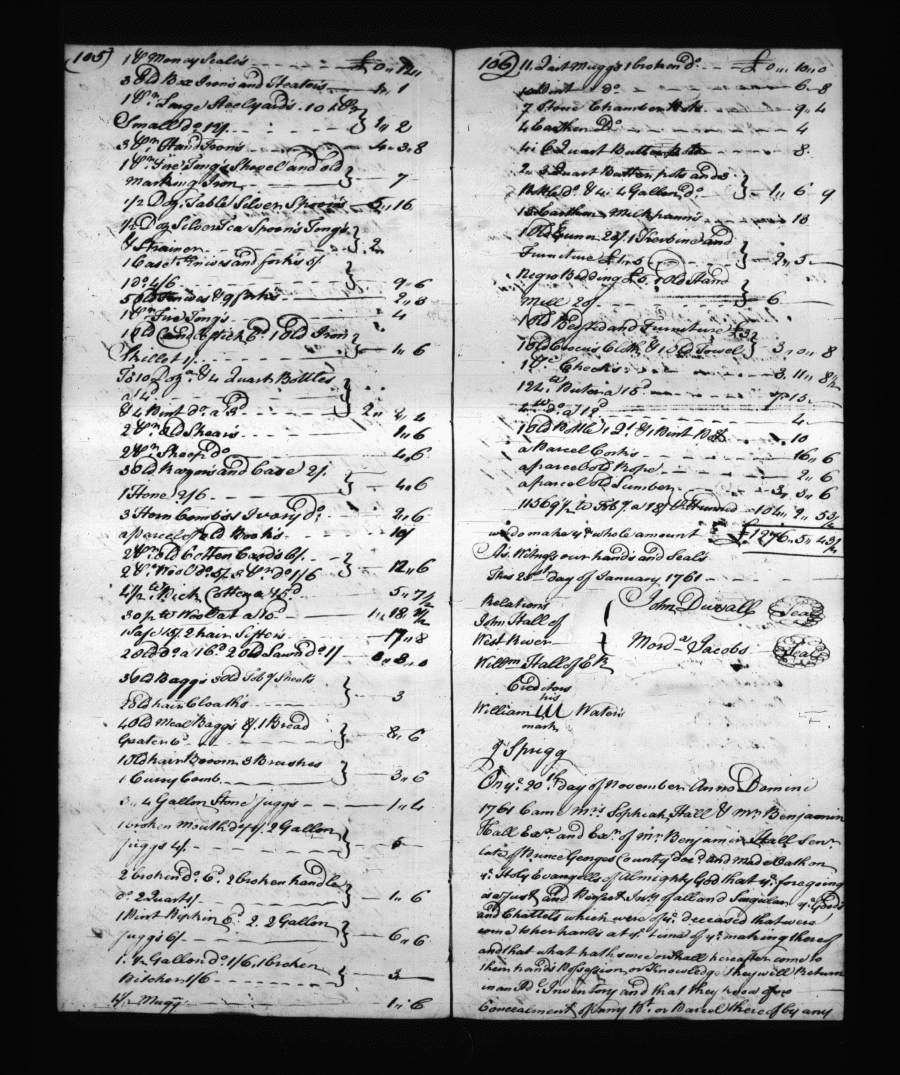 (105)
1 pr Money Scales - - - £ 0 " 12 "
3 Old Box Irons and Heaters - - 1
1 pr Large Steelyards 10/ & pr
Small do 12/ - - - } 1 " 2
3 pr Hand Irons - - 3 " 8
1 pr Fire Tongs Shovel and old
Marking Iron - - - } 7
1/2 Doz Table Silver Spoons - 16
1/2 Doz Silver Tea Spoons Tongs
& Strainer - - - } 2 "
1 Case with Knives and forks 5/
1 do 4/6 - - - } 9 " 6
5 Old Knives & 9 forks - - 2 " 8
1 pr Fire Tongs - - - 4
1 Old Candlestick 6d 1 Old Iron
Skillet 1/ - - - } 1 " 6
To 10 Doz & 4 Quart Bottles
a 4d
& 4 Pint do a 3d } 2 " 4
2 pr Old Shears - - - 1 " 6
2 pr Sheep do - - - 4 " 6
3 Old Razors and Case 2/
1 Hone 2/6 - - - } 4 " 6
3 Horn Combs 1 Ivory do - - 2 " 6
a parcel of old Books - - 10/
2 pr old Cotton Cards 6/
2 pr Wool do 5/ & pr do 1/6 } 12 " 6
4 1/2 lb Pick Cotton a 15d 5 " 7 1/2
30 1/2 lb Wool at a 15d 1 " 18 " 1 1/2
1 Safe 15/ 2 hair Sifters - - 17 " 8
2 Old do a 16d 2 Old Lawn do 1/ 0 " 8 " 0
3 Old Baggs 3 Old Sheets
2 Old hair Cloaths - - } 3
4 Old Meal Baggs 8/ 1 Bread
Grater 6d - - - } 8 " 6
1 Old hair Broom 3 Brushes
1 Curry Comb - - - } 3 " 6
4 Gallon Stone Juggs - - 1 " 4
1 broken Mouth do 4/ 2 Gallon
juggs 4/ - - - } 5
2 broken do 6d 2 broken handle
do 2 Quarts/ - - - } 1 " 6
1 Pint Pipkin 6d 2 2 Gallon
juggs 6/ - - - } 6 " 6
1 4 Gallon do 1/6, 1 broken
Pitcher 1/6 - - - } 3
4/ Mugg - - - 1 " 6
106) 11 Quart Muggs 1 broken do - - £ 0 " 10 " 0
10 Pint do - - - 6 - 8
7 Stone Chamber Pots - - 9 " 4
4 Earthen Do - - - 4
Quart Butter pots - - 8
2 3 Quart Butter pots and 3
do & 4 Gallon do } 1 " 6 " 9
15 Earthen Milk panns - - 10
1 Old Gunn 20/ 1 Horse and
Furniture - - } 2 " 5
Negro Bedding £5, 1 Old Hand
Mill 20/ - - - } 6
1 Old Bedsted and Furniture £3
1 Old Cloth & 1 Old Towel } 3 " 0 " 8
Checks - - - 3 " 11 " 8 1/2
124 lb Butter a 15d - - 7 " 15
do a 12d - - 4
1 Old Bottle 1 Qt & 1 Pint Pot - 10
a Parcel Corks - - - 16 " 6
a parcel old Rope - - - 2 " 6
a parcel old Lumber - - 3 " 3 " 6
11569 1/2 lb Tobo a 18/ pr Hundred - 104 " 2 " 5 3/4
wch do make ye whole amount £1276 " 5 " 4 3/4
As Witness our hands and Seals
This 20st day of January 1761 - -
Relations
John Hall of
West River
Willm Hall of
John Duvall (Seal)
Mordi Jacobs (Seal)
Creditors
his
William W Waters
mark
J Sprigg
On ye 20th day of November Anno Domini
1761 Came Mrs Sophiah Hall & Mr Benjamin
Hall Exx and Exr of Mr Benjamin Hall Senr
late of Prince Georges County decd and Made Oath on
ye Holy Evangells of Almighty God that ye foregoing
is a Just and Perfect Invy of all and Singular ye Goods
and Chattels which were of ye deceased that were
come to her hands at ye time of ye making thereof
and that what hath since or shall hereafter come to
their hands Possession or Knowledge they will Return
in an Adl Inventory and that they know of no
Concealment of any Pt or Parcel thereof by any